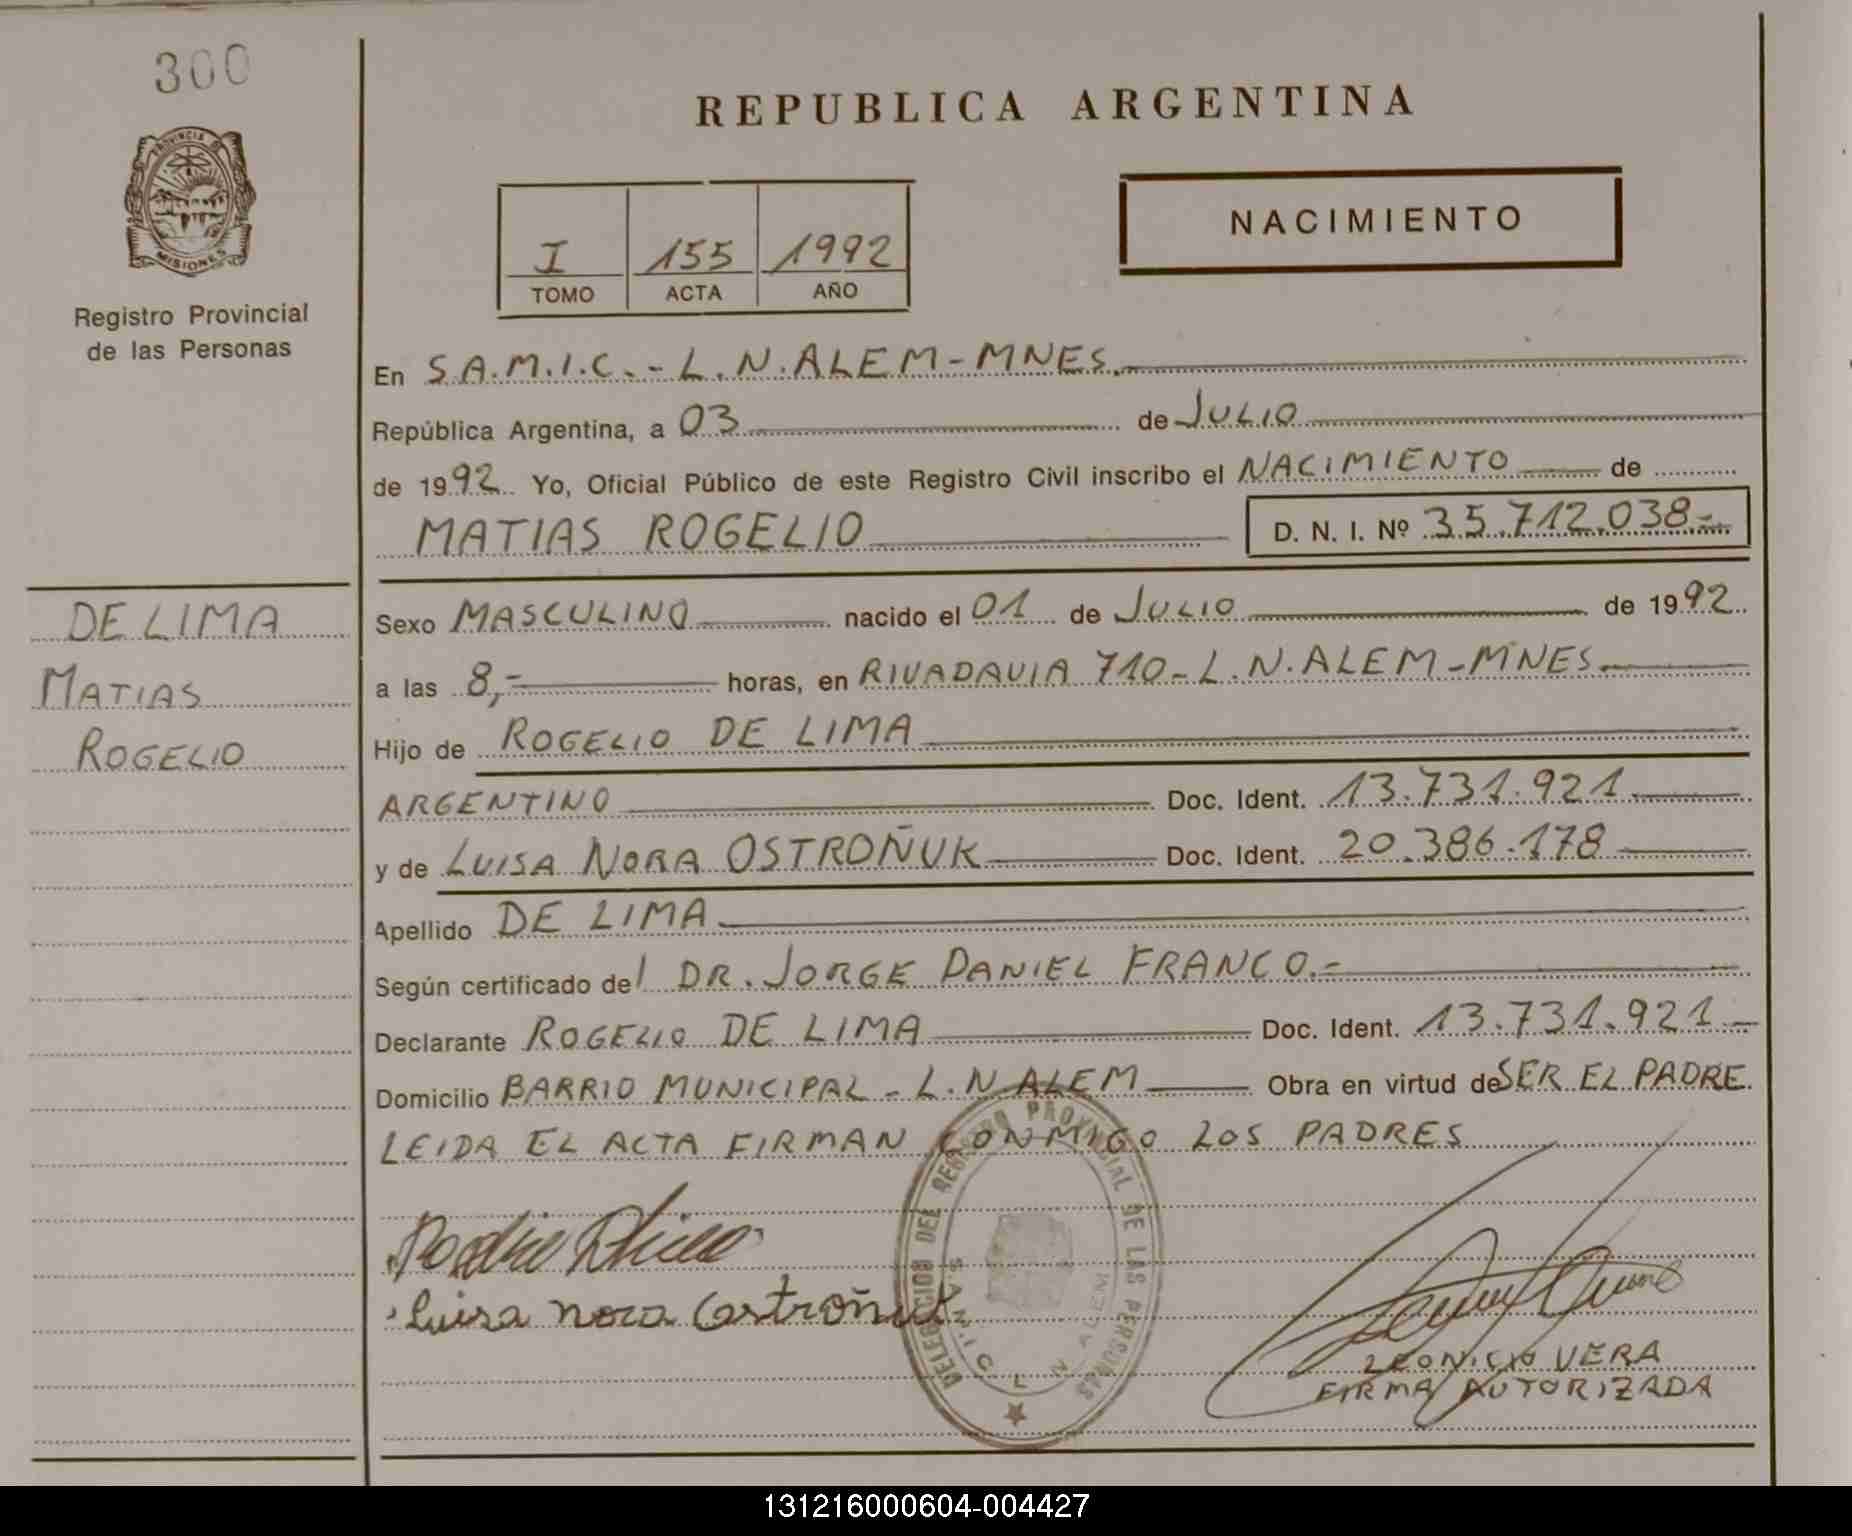 300
PROVINCIA DE
MISIONES
Registro Provincial
de las Personas
REPUBLICA ARGENTINA
I 155 1992
TOMO ACTA AÑO
NACIMIENTO
En S.A.M.I.C.-L.N.ALEM-MNES.
República Argentina, a 03 de JULIO
de 1992 Yo, Oficial Público de este Registro Civil inscribo el NACIMIENTO de
MATIAS ROGELIO D. N. I. Nº 35.712.038-
DE LIMA
MATIAS
ROGELIO
Sexo MASCULINO nacido el 01 de JULIO de 1992
a las 8,- horas, en RIVADAVIA 710-L.N.ALEM-MNES
Hijo de ROGELIO DE LIMA
ARGENTINO Doc. Ident. 13.731.921
y de LUISA NORA OSTROÑUK Doc. Ident. 20.386.178
Apellido DE LIMA
Según certificado del DR. JORGE DANIEL FRANCO.-
Declarante ROGELIO DE LIMA Doc. Ident. 13.731.921
Domicilio BARRIO MUNICIPAL - L.N ALEM Obra en virtud de SER EL PADRE.
LEIDA EL ACTA FIRMAN CONMIGO LOS PADRES
Luisa Nora Ostroñuk
DELEGACION DEL REGISTRO PROVINCIAL DE LAS PERSONAS
S.A.M.I.C L N ALEM
LEONICIO VERA
FIRMA AUTORIZADA
131216000604-004427